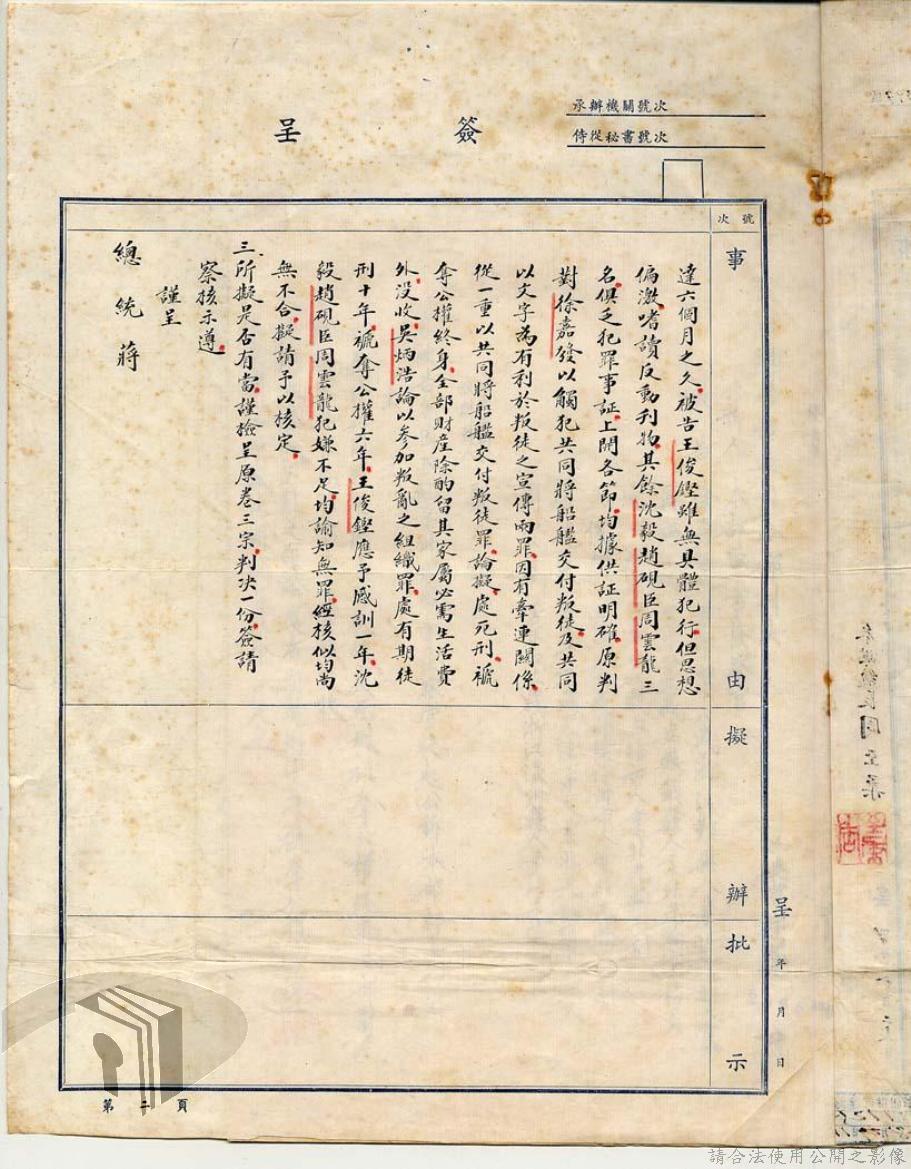 承辦機關號次
侍從秘書號次
簽呈
號次
事由
擬辦
批示
呈 年 月 日
達六個月之久被告王俊鏗雖無具體犯行但思想
偏激嗜讀反動刊物其餘沈毅趙硯臣周雲龍三
名俱乏犯罪事証上開各節均據供証明確原判
對徐嘉發以觸犯共同將船艦交付叛徒及共同
以文字為有利於叛徒之宣傳兩罪因有牽連關係
從一重以共同將船艦交付叛徒罪論擬處死刑褫
奪公權終身全部財産除酌留其家屬必需生活費
外沒收吳炳浩論以參加叛亂之組織罪處有期徒
刑十年褫奪公權六年王俊鏗應予感訓一年沈
毅趙硯臣周雲龍犯嫌不足均諭知無罪經核似均尚
無不合擬請予以核定
三所擬是否有當謹檢呈原卷三宗判決一份簽請
察核示遵
謹呈
總統蔣
第二頁
請合法使用公開之影像